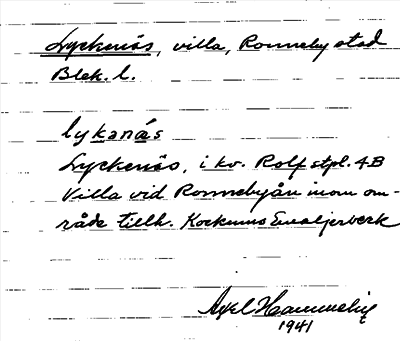 Lyckenäs, villa, Ronneby stad
Blek. l.
lykanás
Lyckenäs, i kv. Rolf stpl. 4B
Villa vid Ronnebyån inom om-
råde tillh. Kockums Emaljerverk
Axel
1941